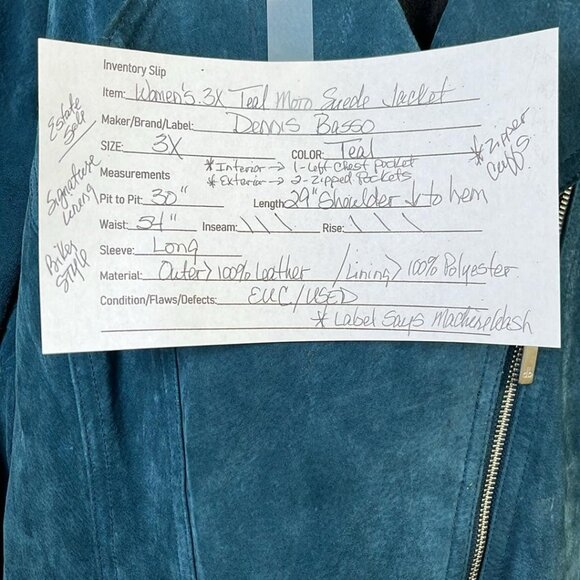 Inventory Slip
Item: Women's 3X Teal Moto Suede Jacket
Maker/Brand/Label: Dennis Basso
SIZE: 3X COLOR: Teal
* Interior → 1-Left Chest Pocket
Measurements * Exterior → 2-Zipped Pockets
Pit to Pit: 30" Length: 29" Shoulder ↓ to hem
Waist: 54" Inseam: \ \ \ Rise: \ \ \
Sleeve: Long
Material: Outer> 100% Leather / Lining> 100% Polyester
Condition/Flaws/Defects: EUC/USED
* Label Says Machine Wash
Estate
Sale
Signature
Lining
Biker
STYLE
* Zipper
Cuffs